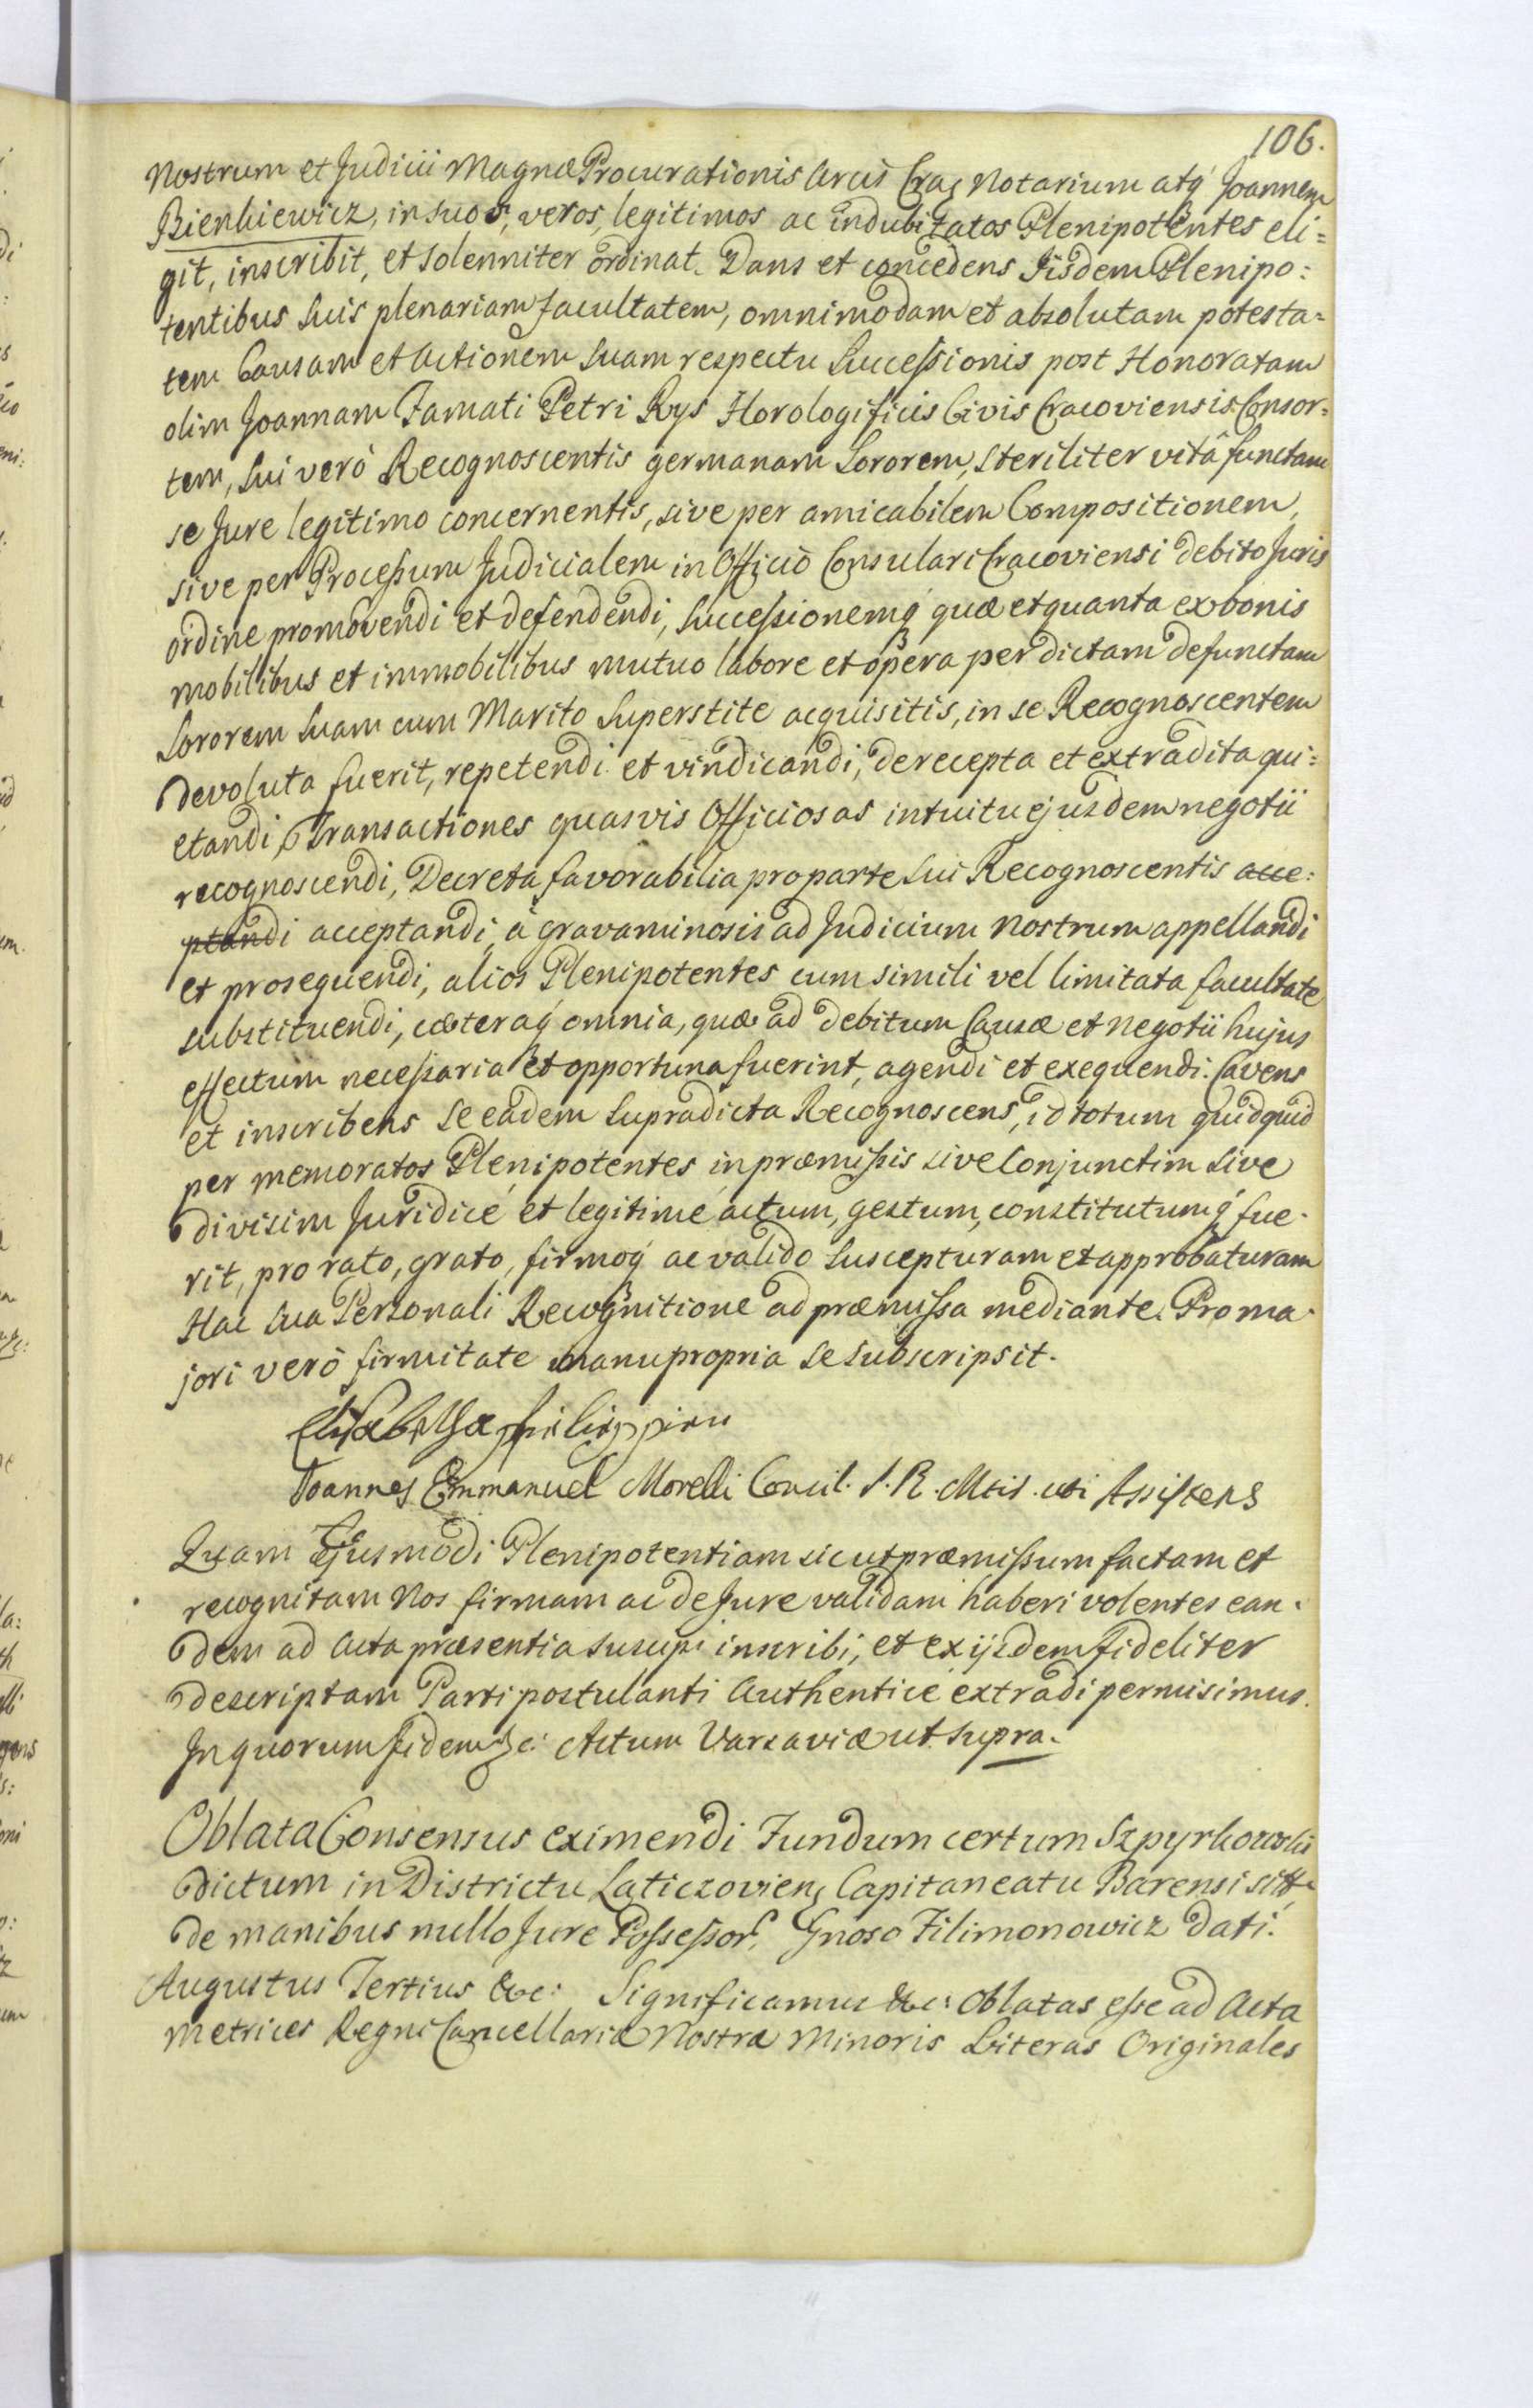 106.
Nostrum et Judicii Magnæ Procurationis Arcis Crac Notarium atq́ Joannem
Bienkiewicz, in suos, veros, legitimos ac indubitatos Plenipotentes eli=
git, inscribit, et solenniter ordinat. Dans et concedens Iisdem Plenipo:
tentibus Suis plenariam facultatem, omnimodam et absolutam potesta=
tem Causam et Actionem Suam respectu Successionis post Honoratam
olim Joannam Famati Petri Rys Horologificis Civis Cracoviensis Consor=
tem, Sui verò Recognoscentis germanam Sororem, steriliter vitâ functam
se Jure legitimo concernentis, sive per amicabilem Compositionem,
sive per Processum Judicialem in Officio Consulari Cracoviensi debito Juris
ordine promovendi et defendendi, Successionemq́ quæ et quanta ex bonis
mobilibus et immobilibus mutuo labore et opera per dictam defunctam
Sororem Suam cum Marito Superstite acquisitis, in se Recognoscentem
devoluta fuerit, repetendi et vindicandi, de recepta et extradita qui=
etandi, Transactiones quasvis Officiosas intuitu ejusdem negotii
recognoscendi, Decreta favorabilia pro parte Sui Recognoscentis acce:
ptandi acceptandi, à gravaminosis ad Judicium Nostrum appellandi
et prosequendi, alios Plenipotentes cum simili vel limitata facultate
substituendi, cæteraq́ omnia, quæ ad debitum Causæ et negotii hujus
effectum necessaria et opportuna fuerint, agendi et exequendi. Cavens
et inscribens se eadem supradicta Recognoscens, id totum quidquid
per memoratos Plenipotentes in præmissis sive Conjunctim sive
divisim Juridicé et legitimé actum, gestum, constitutumq́ fue-
rit, pro rato, grato, firmoq́ ac valido suscepturam et approbaturam
Hac sua Personali Recognitione ad præmissa mediante. Pro ma-
jori verò firmitate manu propria se subscripsit.
Elisabetha Philippin
Joannes Emmanuel Morelli Concil. S. R. Mtis. uti Assistens
Quam Ejusmodi Plenipotentiam sicut præmissum factam et
recognitam Nos firmam ac de Jure validam haberi volentes ean-
dem ad Acta præsentia suscipi inscribi, et ex ijsdem fideliter
descriptam Parti postulanti Authenticé extradi permisimus.
In quorum fidem &c: Actum Varsaviæ ut supra.
Oblata Consensus eximendi Fundum certum Szpyrkowski
dictum in Districtu Laticzovien Capitaneatu Barensi
de manibus nullo Jure Possessor, Gnoso Filimonowicz dati.
Augustus Tertius &c: Significamus &c: Oblatas esse ad Acta
Metrices Regni Cancellariæ Nostræ Minoris Literas Originales